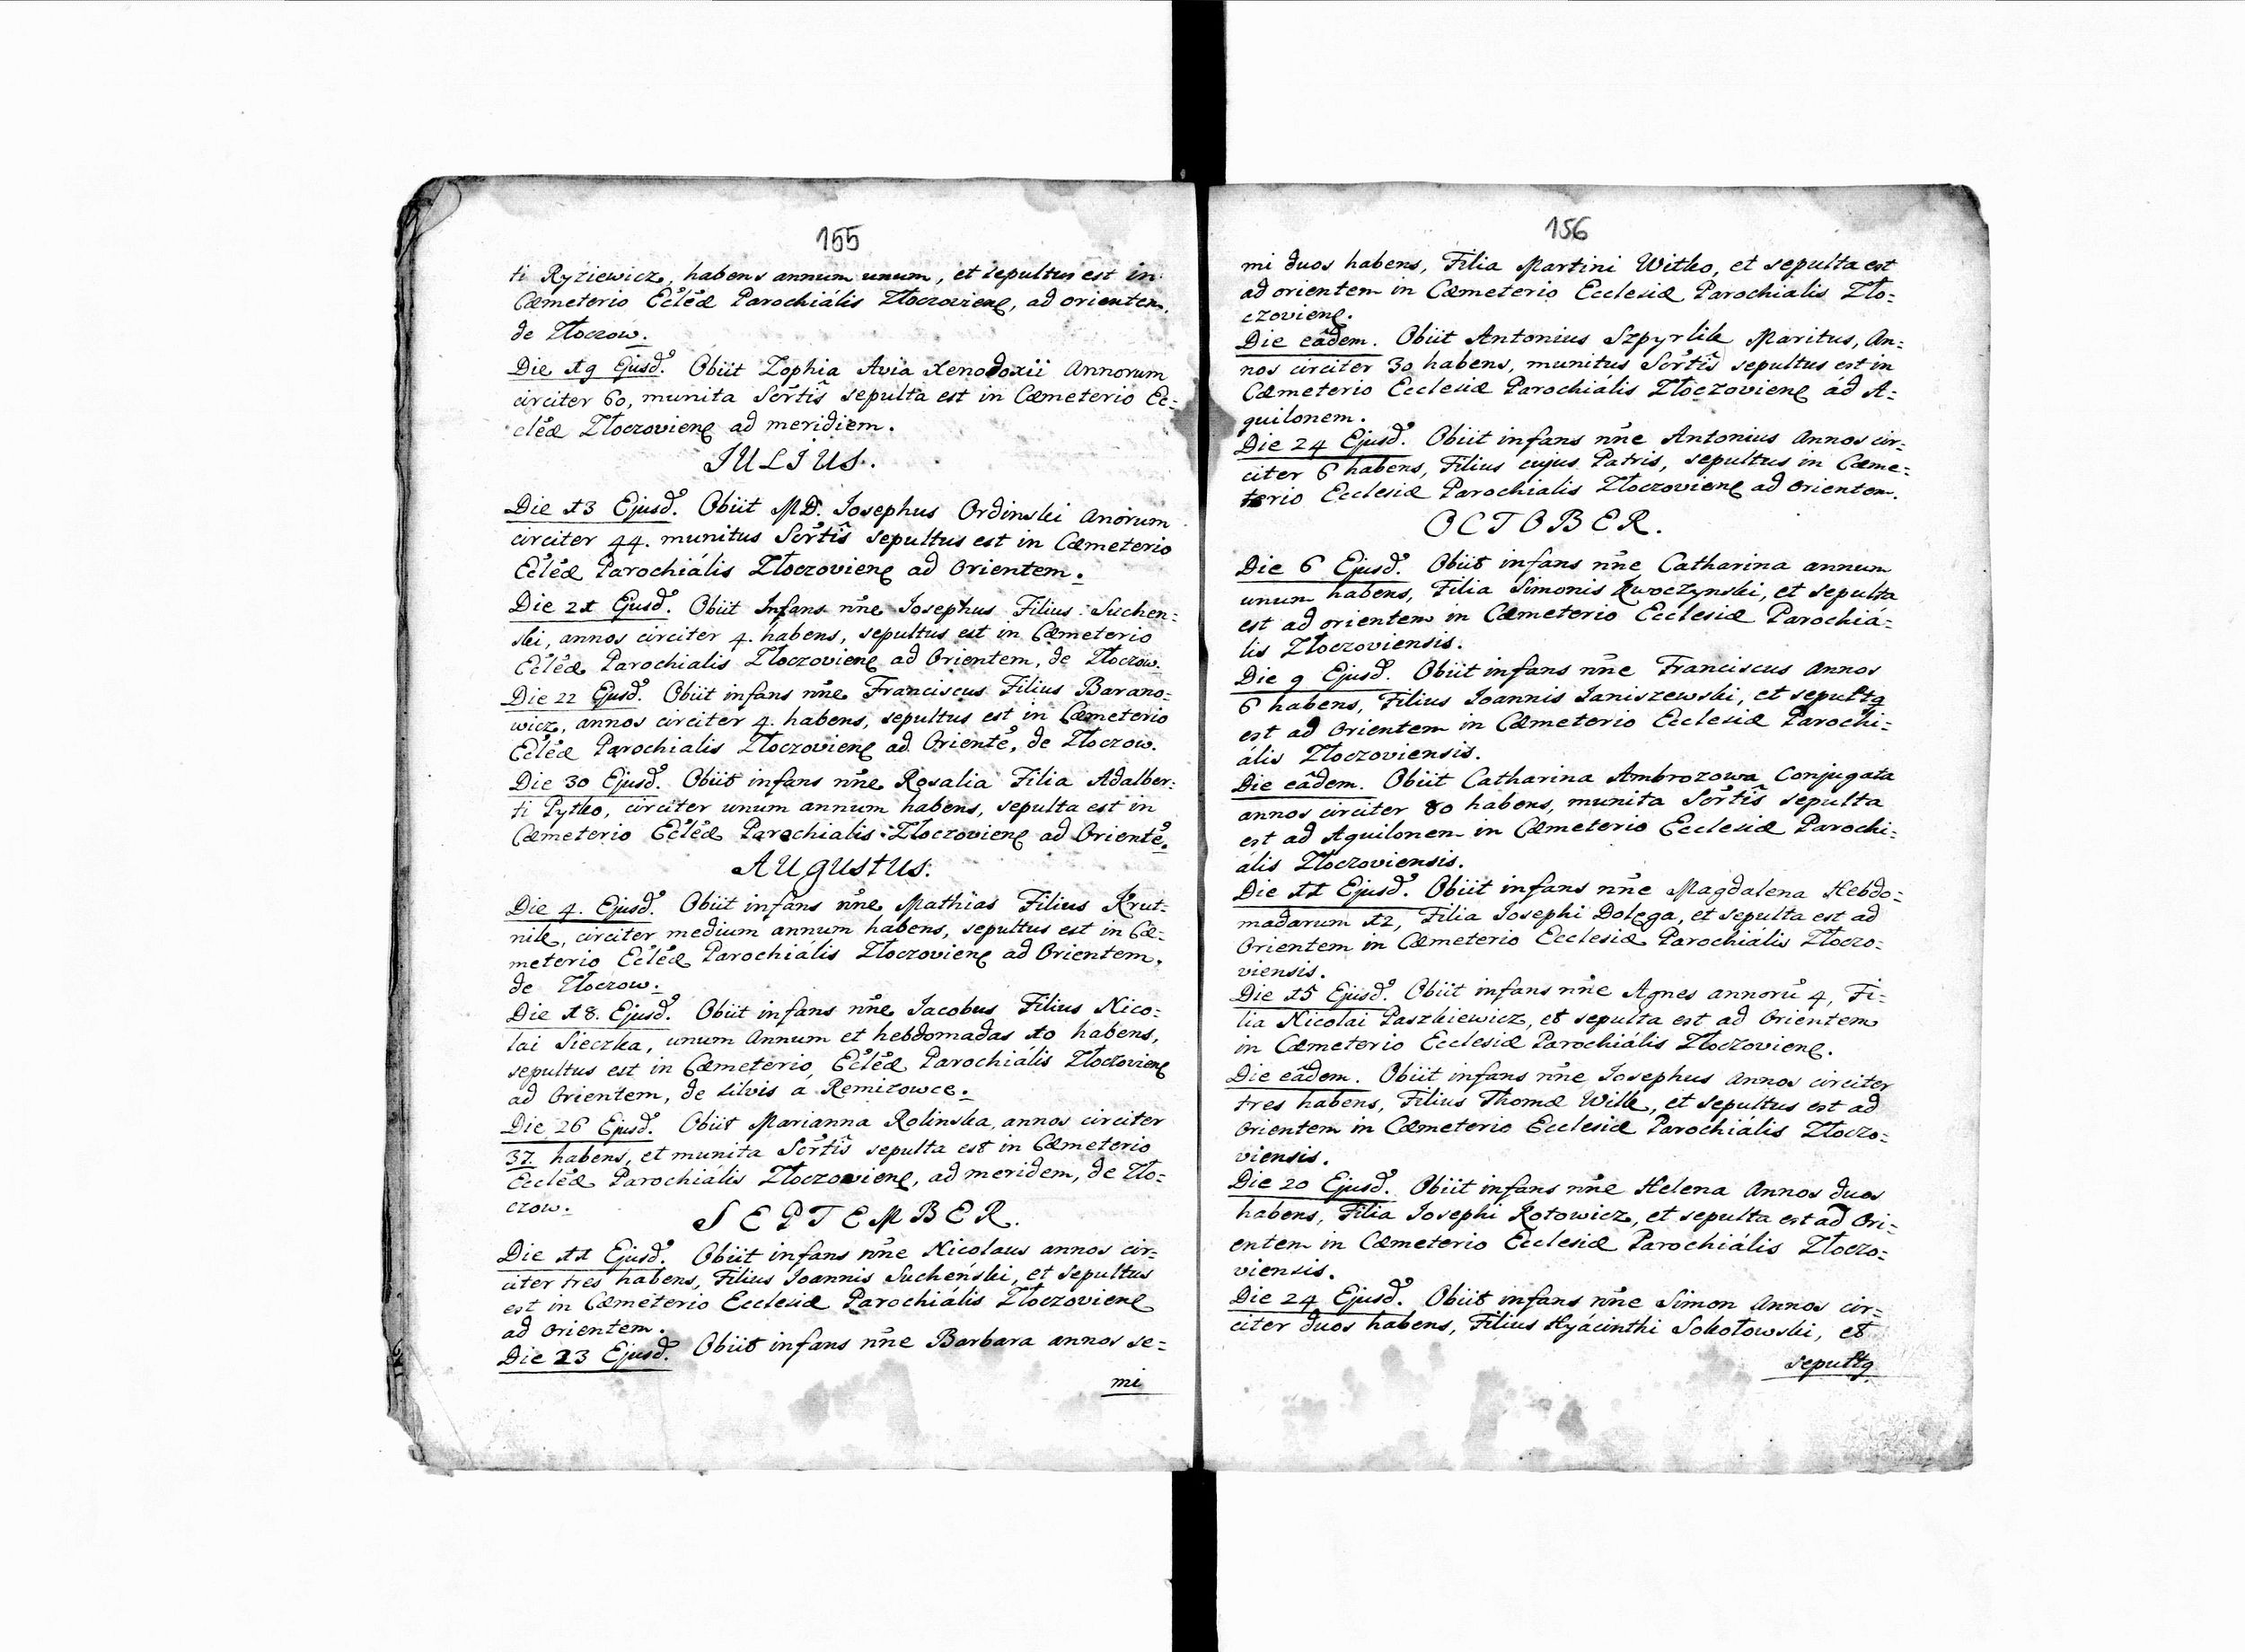 155
ti Ryziewicz, habens annum unum, et sepultus est in
Cæmeterio Ecleæ Parochiális Złoczovienę, ad orientem,
de Złoczow.
Die 19 Ejusd. Obiit Zophia Avia Xenodoxii Annorum
circiter 60, munita Scrtis sepulta est in Cæmeterio Ec=
cleæ Złoczovienę ad meridiem.
IULIUS.
Die 13 Ejusd. Obiit MD. Iosephus Ordinski Anorum
circiter 44. munitus Scrtis Sepultus est in Cæmeterio
Ecleæ Parochiális Złoczovienę ad Orientem.
Die 21 Ejusd. Obiit Infans nne Iosephus Filius Suchen=
ski, annos circiter 4. habens, sepultus est in Cæmeterio
Ecleæ Parochialis Złoczovienę ad Orientem, de Złoczow.
Die 22 Ejusd. Obiit infans nne Franciscus Filius Barano=
wicz, annos circiter 4. habens, sepultus est in Cæmeterio
Ecleæ Parochialis Złoczovienę ad Oriente, de Złoczow.
Die 30 Ejusd. Obiit infans nne Rosalia Filia Adalber=
ti Pytko, circiter unum annum habens, sepulta est in
Cæmeterio Ecleæ Parochialis Złoczovienę ad Oriente.
AUGUSTUS.
Die 4. Ejusd. Obiit infans nne Mathias Filius Krut=
nik, circiter medium annum habens, sepultus est in Cæ=
meterio Ecleæ Parochiális Złoczovienę ad Orientem,
de Złoczow.
Die 18. Ejusd. Obiit infans nne Iacobus Filius Nico=
lai Sieczka, unum Annum et hebdomadas 10 habens,
sepultus est in Cæmeterio, Ecleæ Parochiális Złoczovienę
ad Orientem, de silvis a Remizowce.
Die 26 Ejusd. Obiit Marianna Rolinska, annos circiter
37. habens, et munita Scrtis sepulta est in Cæmeterio
Eccleæ Parochiális Złoczovienę, ad meridem, de Zło=
czow.
SEPTEMBER.
Die 11 Ejusd. Obiit infans nne Nicolaus annos cir=
citer tres habens, Filius Ioannis Sucheński, et Sepultus
est in Cæmeterio Ecclesiæ Parochiális Złoczovienę
ad Orientem.
Die 23 Ejusd. Obiit infans nne Barbara annos se=
mi
156
mi duos habens, Filia Martini Witko, et sepulta est
ad orientem in Cæmeterio Ecclesiæ Parochialis Zło=
czovienę.
Die eâdem. Obiit Antonius Szpyrlik Maritus, An=
nos circiter 30 habens, munitus Scrtis sepultus est in
Cæmeterio Ecclesiæ Parochiális Złoczovienę ád A=
quilonem.
Die 24 Ejusd. Obiit infans nne Antonius Annos cir=
citer 6 habens, Filius cujus Patris, sepultus in Cæme=
terio Ecclesiæ Parochialis Złoczovienę ad Orientem.
OCTOBER.
Die 6 Ejusd. Obiit infans nne Catharina annum
unum habens, Filia Simonis Kuvczynski, et sepulta
est ad orientem in Cæmeterio Ecclesiæ Parochiá=
lis Złoczoviensis.
Die 9 Ejusd. Obiit infans nne Franciscus Annos
6 habens, Filius Ioannis Ianiszewski, et sepultq
est ad Orientem in Cæmeterio Ecclesiæ Parochi=
ális Złoczoviensis.
Die eâdem. Obiit Catharina Ambrozowa Conjugata
annos circiter 80 habens, munita Scrtis sepulta
est ad Aquilonem in Cæmeterio Ecclesiæ Parochi=
ális Złoczoviensis.
Die 11 Ejusd. Obiit infans nne Magdalena Hebdo=
madarum 12, Filia Iosephi Dolęga, et sepulta est ad
Orientem in Cæmeterio Ecclesiæ Parochiális Złoczo=
viensis.
Die 15 Ejusd. Obiit infans nne Agnes annoru 4, Fi=
lia Nicolai Paszkiewicz, et sepulta est ad Orientem
in Cæmeterio Ecclesiæ Parochiális Złoczovienę.
Die eâdem. Obiit infans nne Iosephus Annos circiter
tres habens, Filius Thomæ Wilk, et sepultus est ad
Orientem in Cæmeterio Ecclesiæ Parochiális Złoczo=
viensis.
Die 20 Ejusd. Obiit infans nne Helena Annos duos
habens, Filia Iosephi Kotowicz, et sepulta est ad Ori=
entem in Cæmeterio Ecclesiæ Parochiális Złoczo=
viensis.
Die 24 Ejusd. Obiit infans nne Simon Annos cir=
citer duos habens, Filius Hyácinthi Sokołowski, et
sepultq